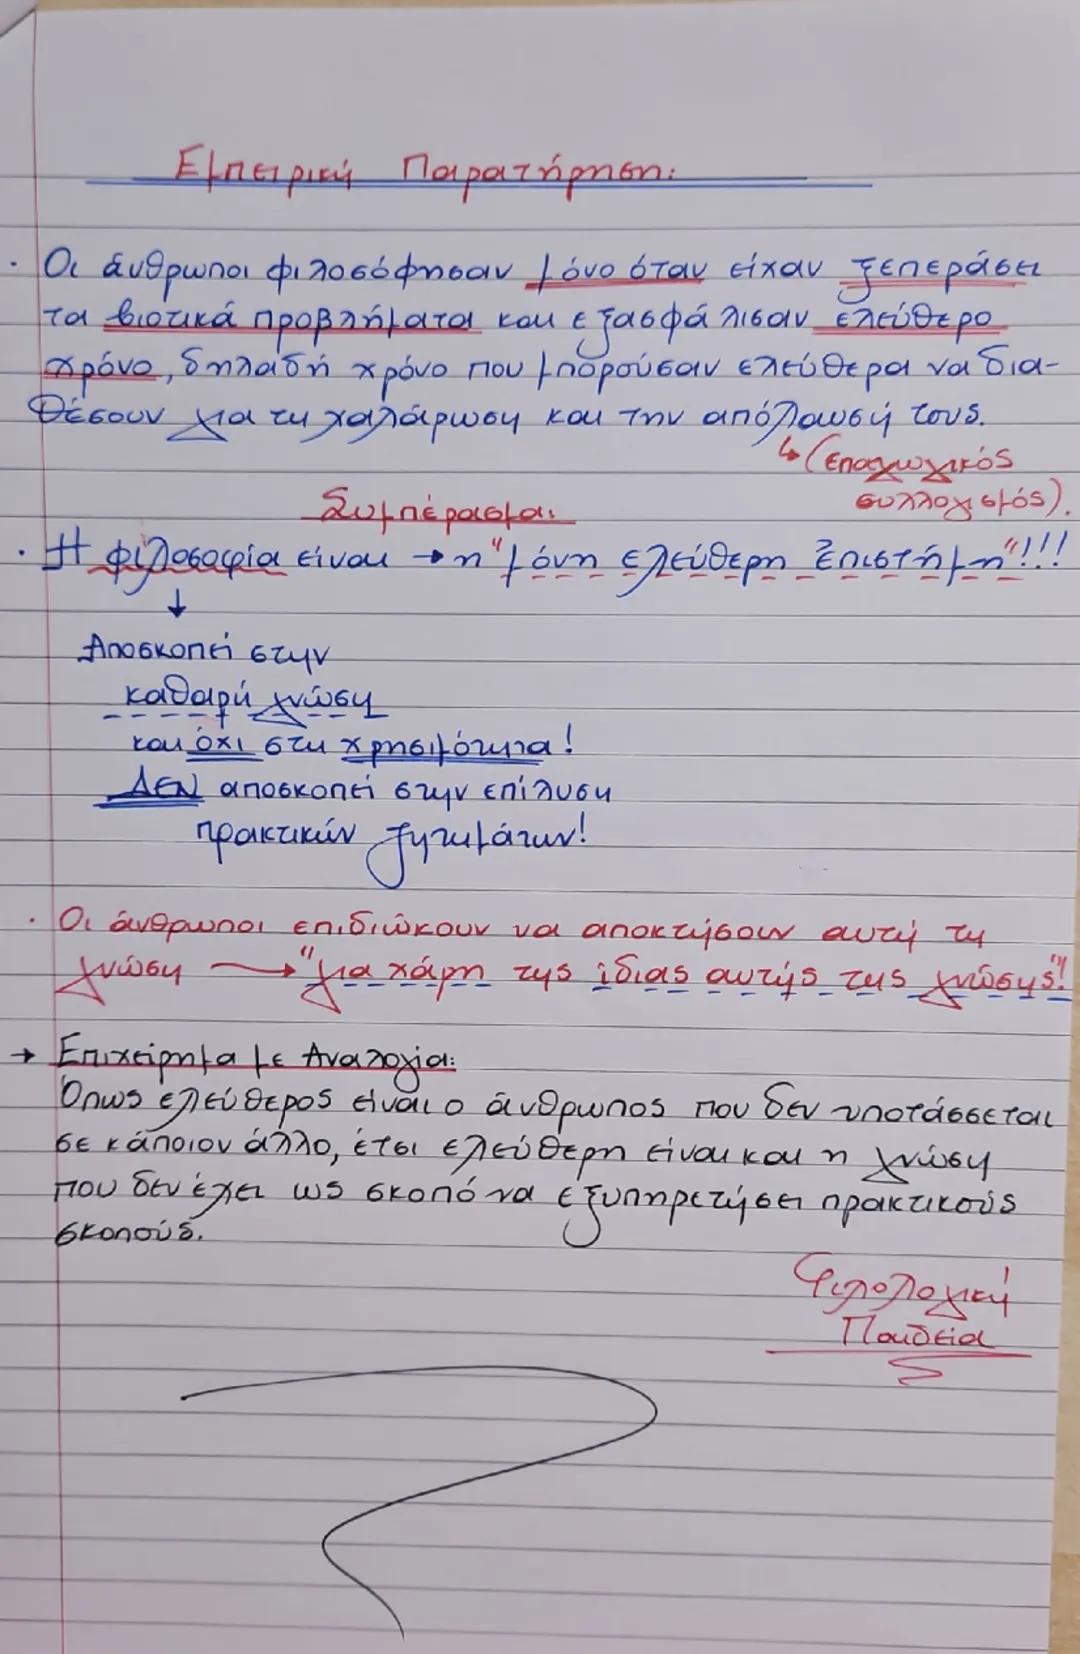 Εμπειρική Παρατήρηση:
· Οι άνθρωποι φιλοσόφησαν μόνο όταν είχαν ξεπεράσει
τα βιοτικά προβλήματα και εξασφάλισαν ελεύθερο
χρόνο, δηλαδή χρόνο που μπορούσαν ελεύθερα να δια-
θέσουν για τη χαλάρωση και την απόλαυσή τους.
↳ (επαγωγικός
συλλογισμός).
Συμπέρασμα:
· Η φιλοσοφία είναι → η "μόνη ελεύθερη επιστήμη"!!!
↓
Αποσκοπεί στην
καθαρή γνώση
και όχι στη χρησιμότητα!
ΔΕΝ αποσκοπεί στην επίλυση
πρακτικών ζητημάτων!
· Οι άνθρωποι επιδιώκουν να αποκτήσουν αυτή τη
γνώση → "για χάρη της ίδιας αυτής της γνώσης"!
→ Επιχείρημα με Αναλογία:
Όπως ελεύθερος είναι ο άνθρωπος που δεν υποτάσσεται
σε κάποιον άλλο, έτσι ελεύθερη είναι και η γνώση
που δεν έχει ως σκοπό να εξυπηρετήσει πρακτικούς
σκοπούς.
Φιλολογική
Παιδεία